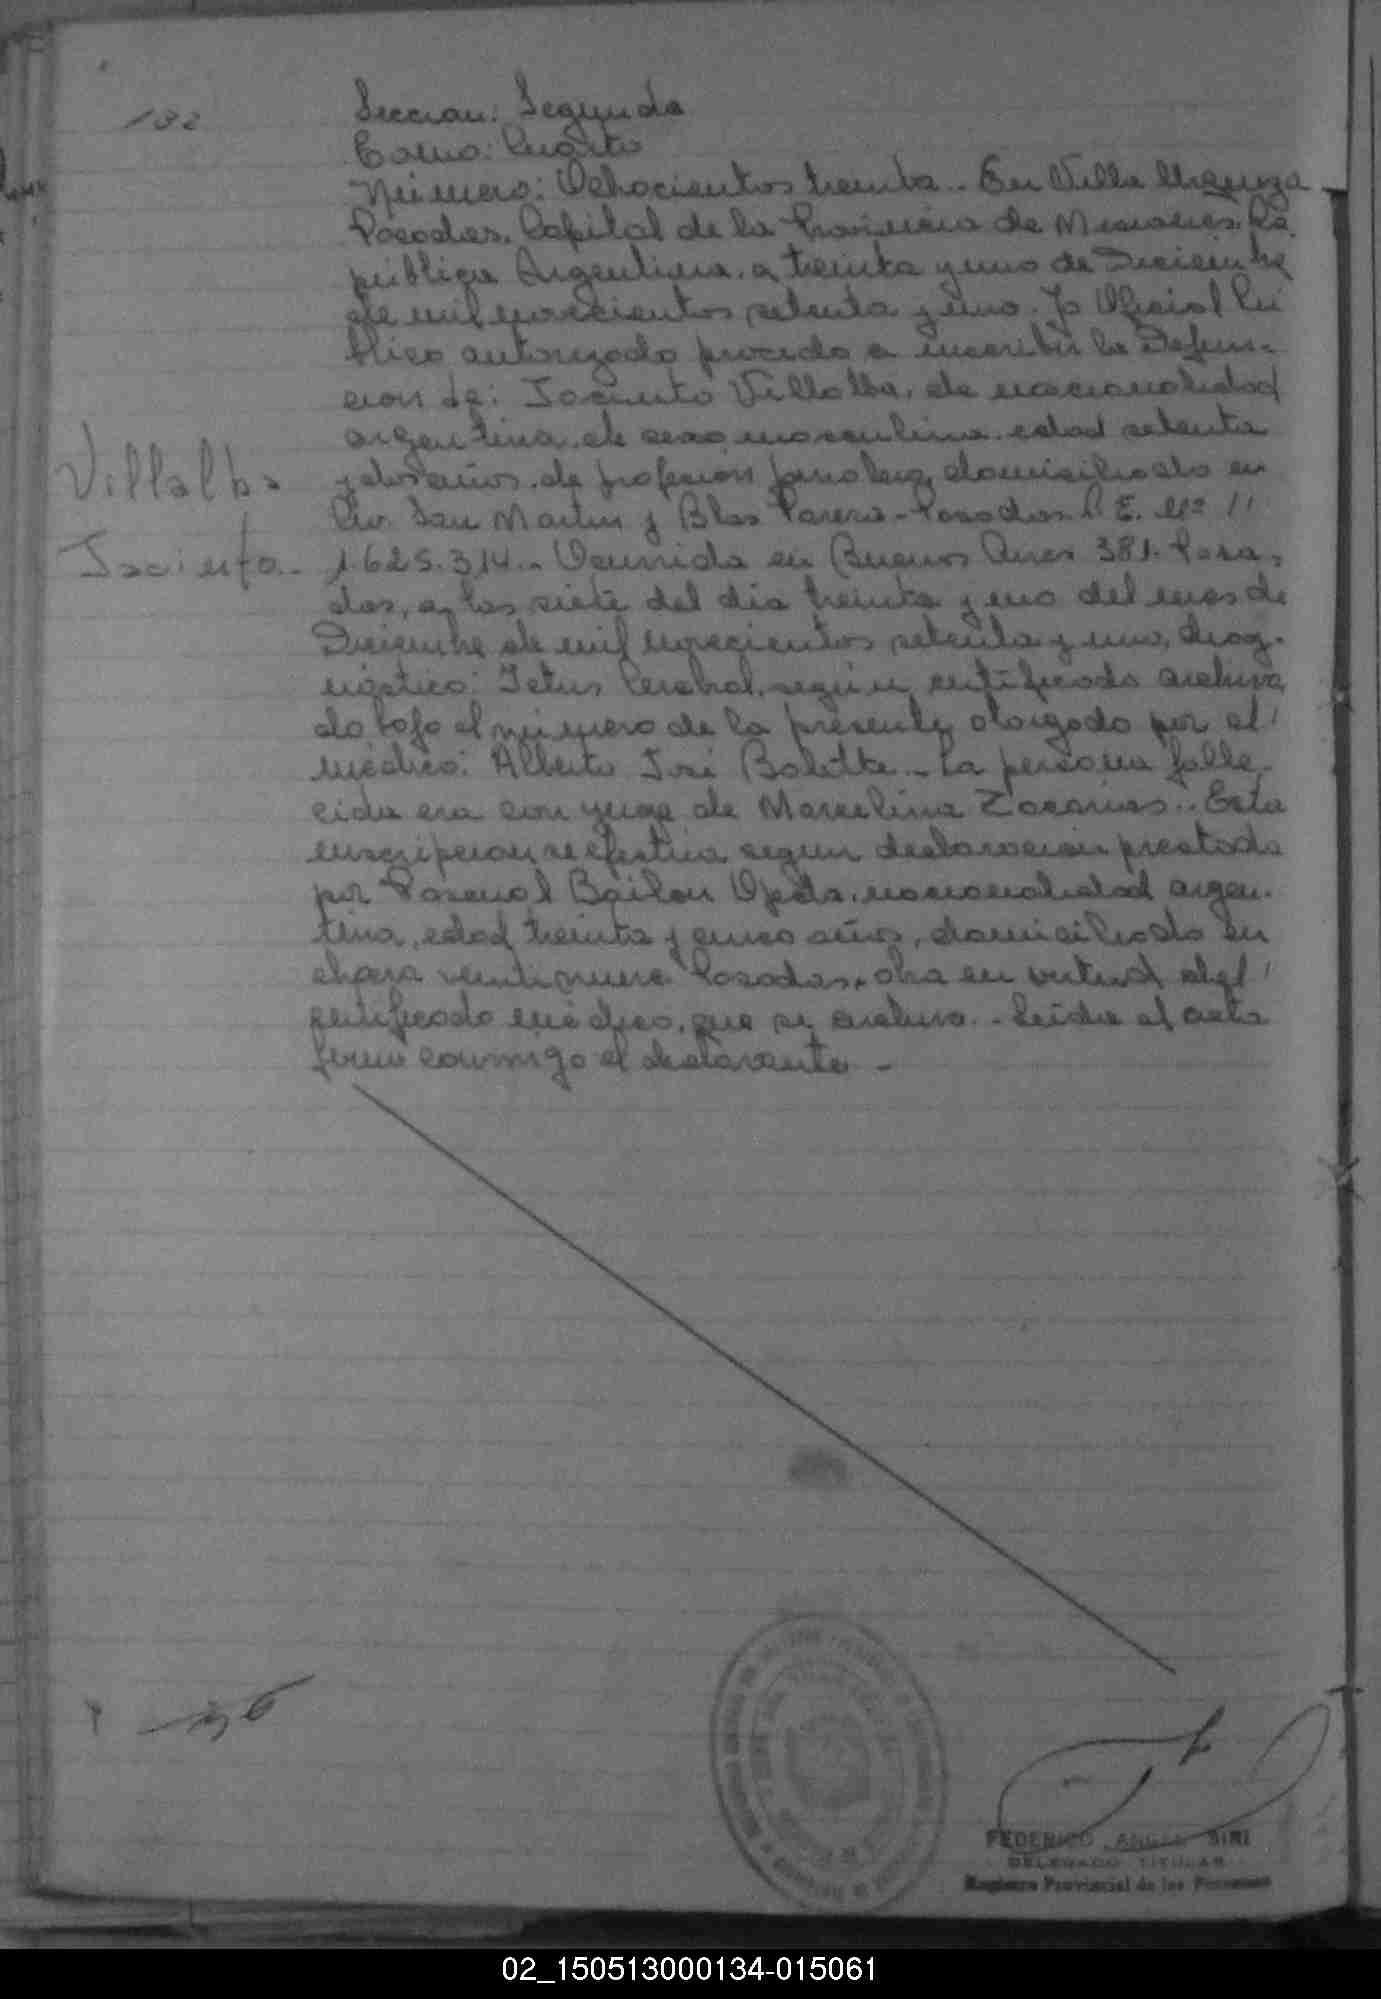 132
Seccion: Segunda
Tomo: Cuarto
Número: Ochocientos treinta.. En Villa Urquiza
Posadas, Capital de la Provincia de Misiones, Re
pública Argentina, a treinta y uno de Diciembre
de mil novecientos setenta y uno. Yo Oficial Pú
blico autorizado procedo a inscribir la Defun-
cion de: Jacinto Villalba, de nacionalidad
argentina, de sexo masculino, edad setenta
y dos años, de profesión jornalero, domiciliado en
Av. San Martin y Blas Parera - Posadas L. E. Nº
1.625.314.- Ocurrida en Buenos Aires 381. Posa-
das, a las siete del dia treinta y uno del mes de
Diciembre de mil novecientos setenta y uno, diag-
nóstico: Ictus Cerebral, según certificado archiva
do bajo el número de la presente, otorgado por el
médico: Alberto José Balette.- La persona falle-
cida era conyuge de Marcelina Zacarias.. Esta
inscripcion se efectua segun declaracion prestada
por Pascual Bailon Ojeda, nacionalidad argen-
tina, edad treinta y cinco años, domiciliado en
chacra veintinueve Posadas, obra en virtud del
certificado médico, que se archiva.- Leida el acta
firma conmigo el declarante -
Villalba
Jacinto-
FEDERICO ANGEL SIRI
DELEGADO TITULAR
Registro Provincial de las Personas
02_150513000134-015061